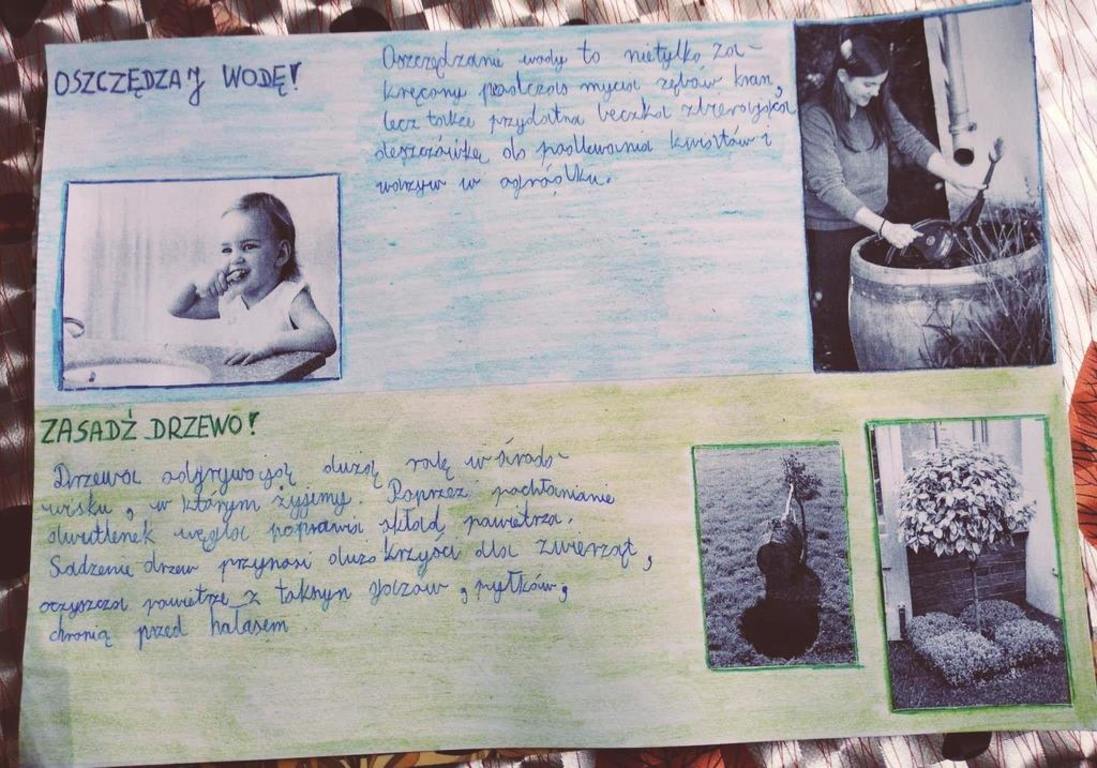 OSZCZĘDZAJ WODĘ!
Oszczędzanie wody to nietylko za-
kręcony podczas mycia zębów kran,
lecz także przydatna beczka zbierająca
deszczówkę do podlewania kwiatów i
warzyw w ogródku.
ZASADŹ DRZEWO!
Drzewa odgrywają dużą rolę w środo-
wisku, w którym żyjimy. Poprzez pochłanianie
dwutlenek węgla poprawia skład powietrza.
Sadzenie drzew przynosi dużo krzyści dla zwierząt,
oczyszcza powietrze z taknyn gazów, pyłków,
chronią przed hałasem